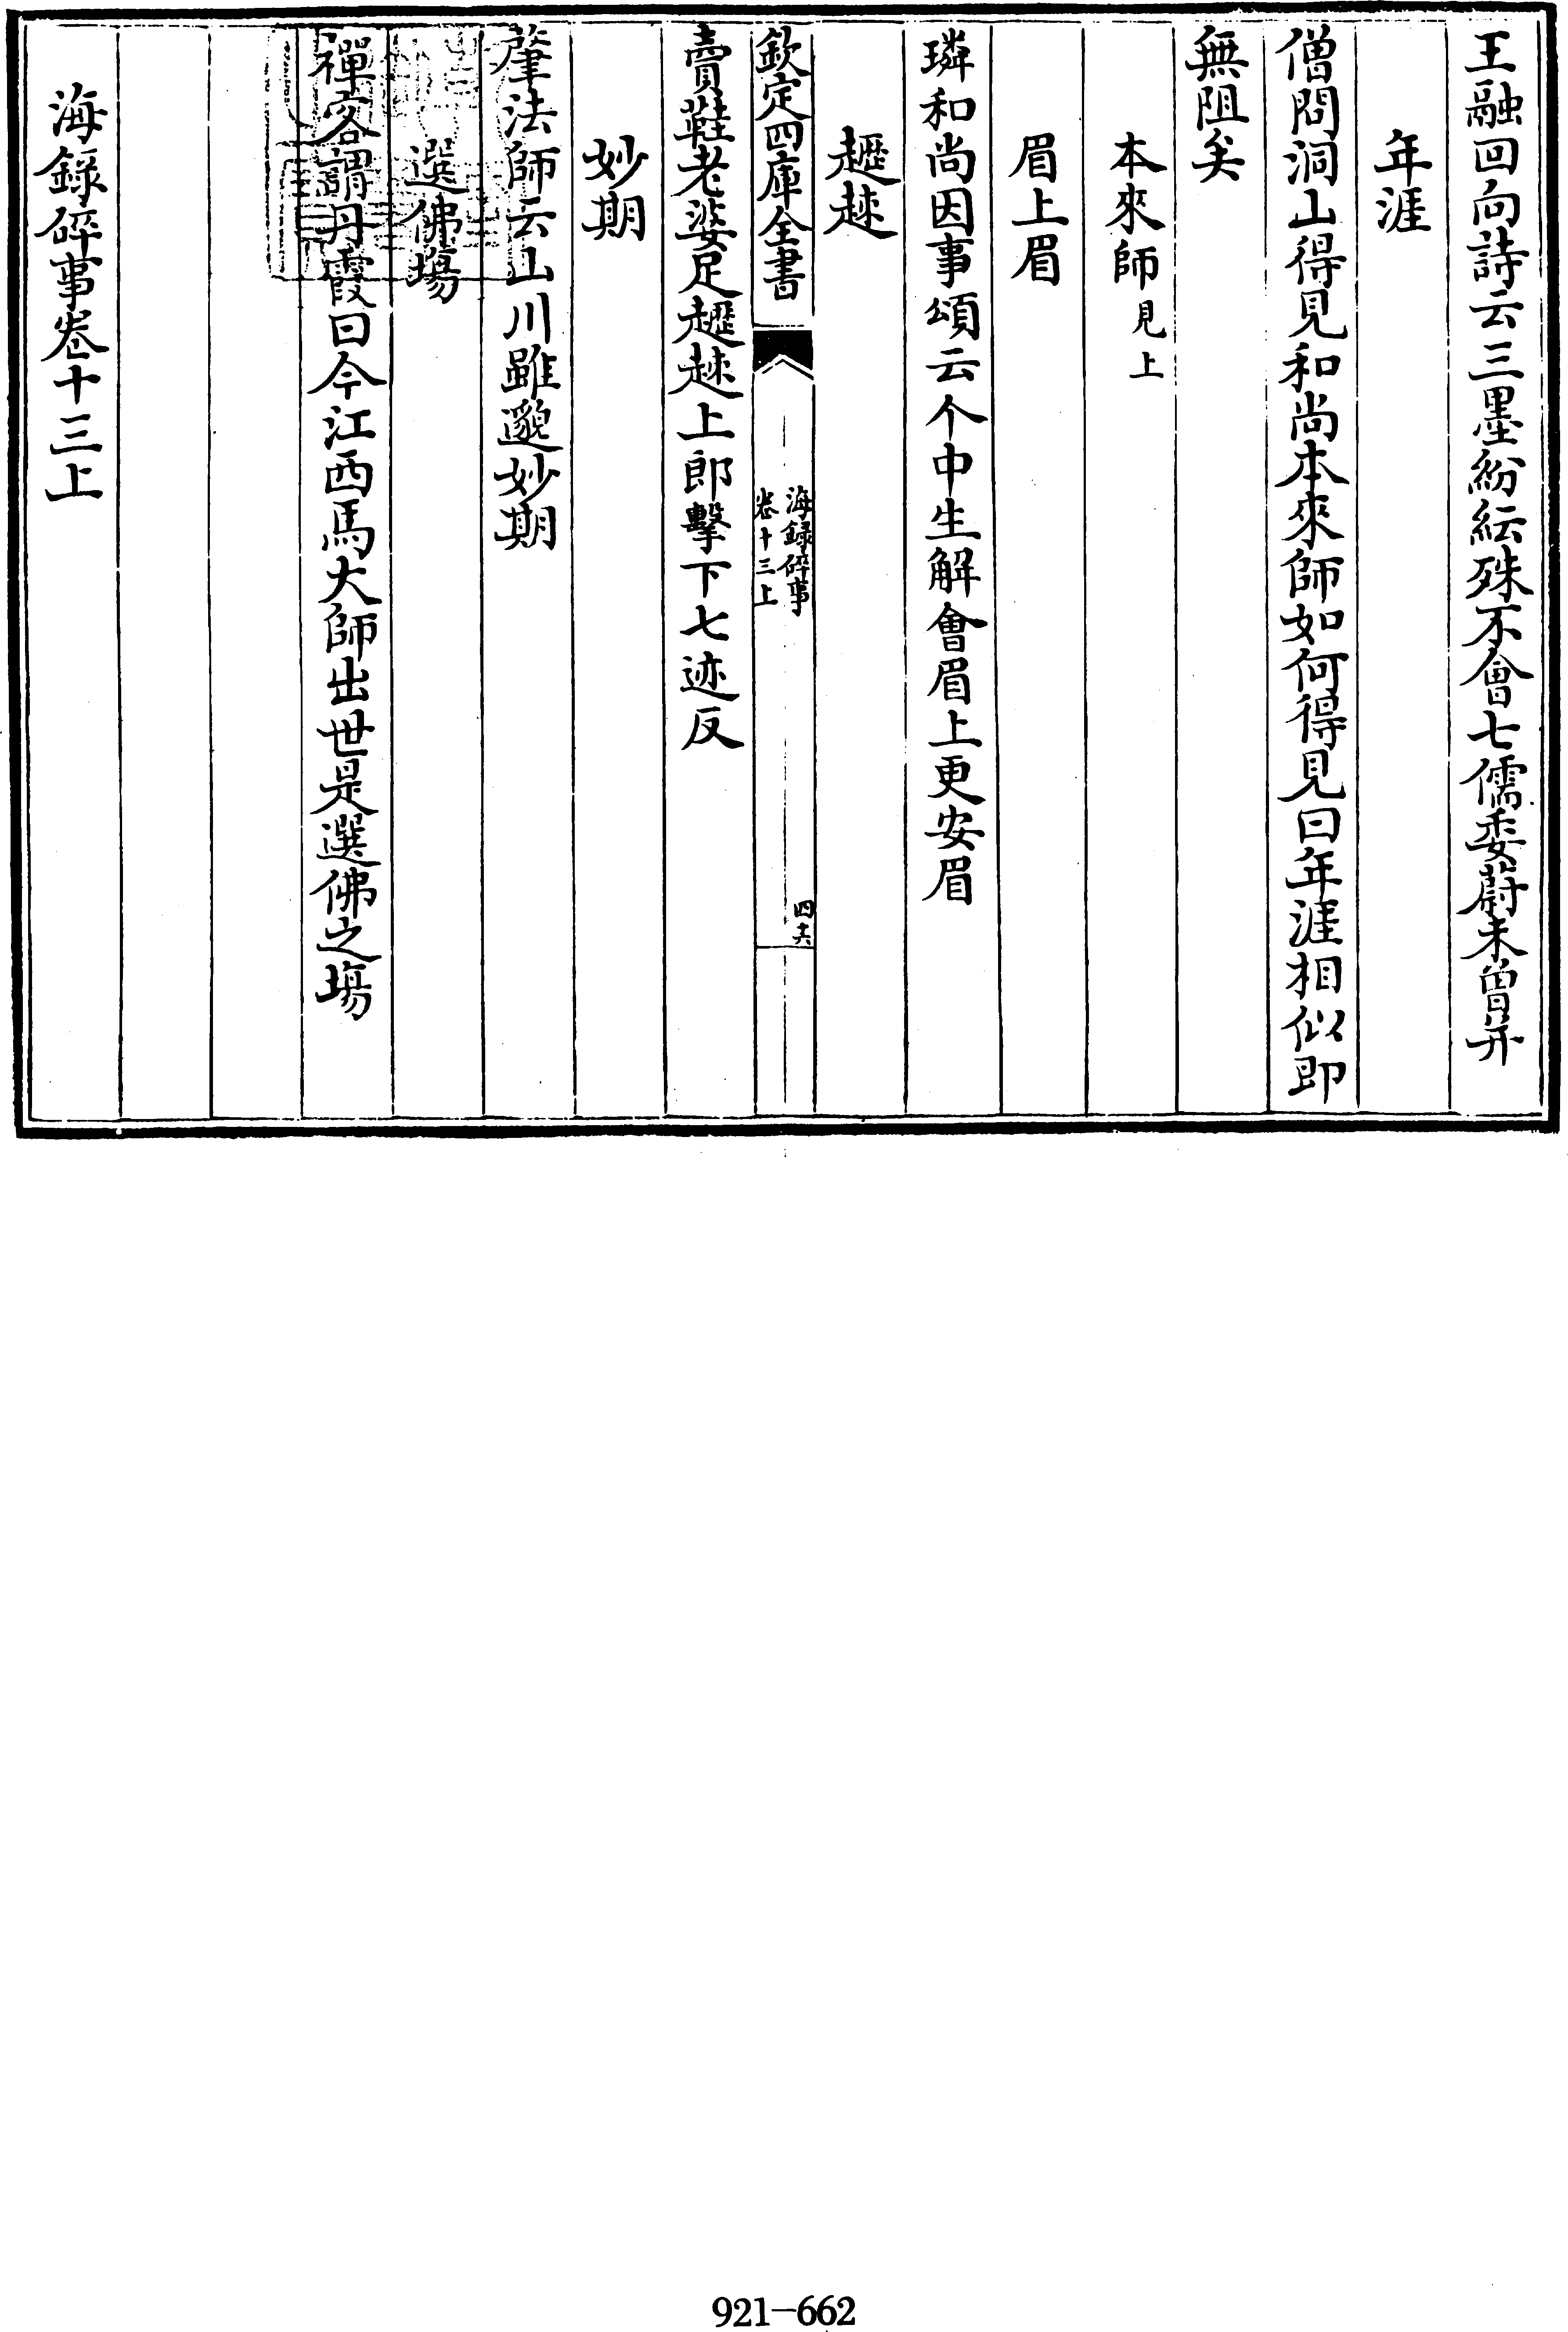 王融回向詩云三墨紛紜殊不會七儒委蔚未曽并
年涯
僧問洞山得見和尚本來師如何得見曰年涯相似即
無阻矣
本來師見上
眉上眉
璘和尚因事頌云个中生解會眉上更安眉
䟐趚
欽定四庫全書
海録碎事
卷十三上
四十六
賣鞋老婆足䟐趚上郎擊下七迹反
妙期
肇法師云山川雖邈妙期
選佛塲
禪客謂丹霞曰今江西馬大師出世是選佛之塲
海錄碎事卷十三上
921-662